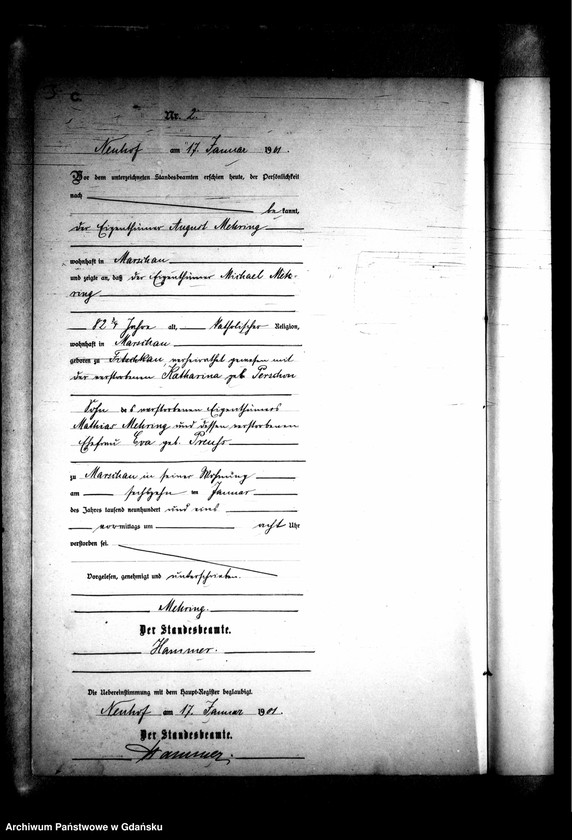 C.
Nr. 2.
Neuhof am 17 Januar 1901.
Vor dem unterzeichneten Standesbeamten erschien heute, der Persönlichkeit
nach
be kannt,
der Eigenthümer August Mehring
wohnhaft in Marschau
und zeigte an, daß der Eigenthümer Michael Meh-
ring
82 3/4 Jahre alt, katholischer Religion,
wohnhaft in Marschau
geboren zu verheirathet gewesen mit
der verstorbenen Katharina geb Perschon
Sohn des verstorbenen Eigenthümers
Mathias Mehring und dessen verstorbenen
Ehefrau Eva geb. Preuss
zu Marschau in seiner Wohnung
am sechszehn ten Januar
des Jahres tausend neunhundert und eins
vormittags um acht Uhr
verstorben sei.
Vorgelesen, genehmigt und unterschrieben.
Mehring.
Der Standesbeamte.
Hammer.
Die Uebereinstimmung mit dem Haupt-Register beglaubigt.
Neuhof am 17. Januar 1901.
Der Standesbeamte.
Hammer.
Archiwum Państwowe w Gdańsku